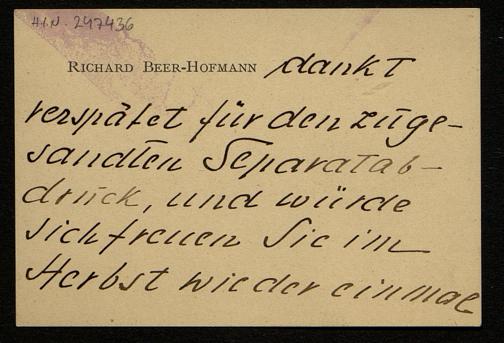 H.I.N. 247436
RICHARD BEER-HOFMANN dankt
verspätet für den zuge-
sandten Separatab-
druck, und würde
sich freuen Sie im
Herbst wieder einmal